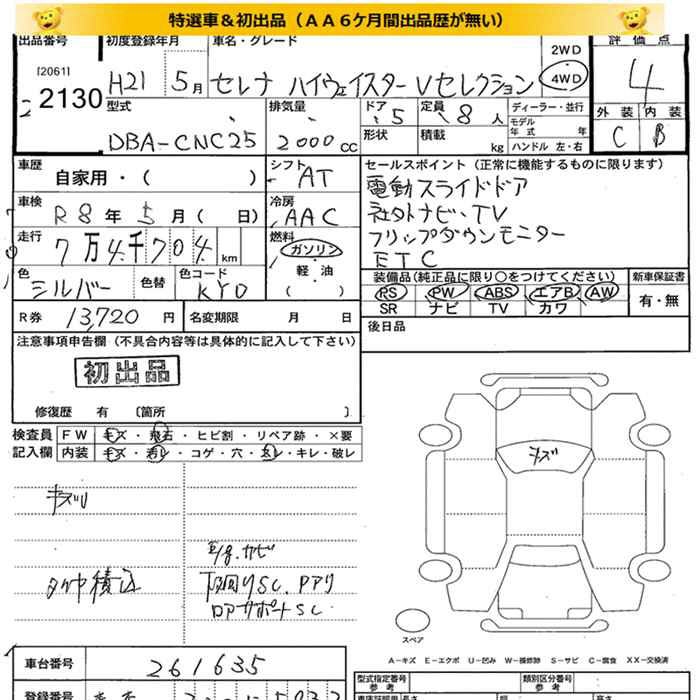 特選車＆初出品（ＡＡ６ケ月間出品歴が無い）
出品番号 初度登録年月 車名・グレード 評価点
[2061] H21 5月 セレナ ハイウェイスター Vセレクション 2WD 4WD 4
2130
型式 排気量 ドア 5 定員 8人 ディーラー・並行 外装 内装
DBA-CNC25 2000cc 形状 積載 kg モデル年式 年 ハンドル 左・右 C B
車歴 自家用・( ) シフト AT
セールスポイント（正常に機能するものに限ります）
電動スライドドア
社外ナビ・TV
フリップダウンモニター
ETC
車検 R8年5月( 日) 冷房 AAC
走行 7万4千704km 燃料 ガソリン 軽・油 ( )
色 シルバー 色替 色コード KY0
装備品(純正品に限り○をつけてください) 新車保証書
RS PW ABS エアB AW 有・無
SR ナビ TV カワ
R券 13,720円 名変期限 月 日
後日品
注意事項申告欄（不具合内容等は具体的に記入して下さい）
初出品
修復歴 有 〔箇所 〕
検査員 FW キズ・飛石・ヒビ割・リペア跡・×要
記入欄 内装 キズ・汚レ・コゲ・穴・・キレ・破レ
キズ
キズU
下回りSC. Pアリ
ロアサポートSC
スペア
A－キズ E－エクボ U－凹み W－補修跡 S－サビ C－腐食 XX－交換済
車台番号 261635
型式指定番号 参考 類別区分番号 参考
登録番号
長さ 幅 高さ